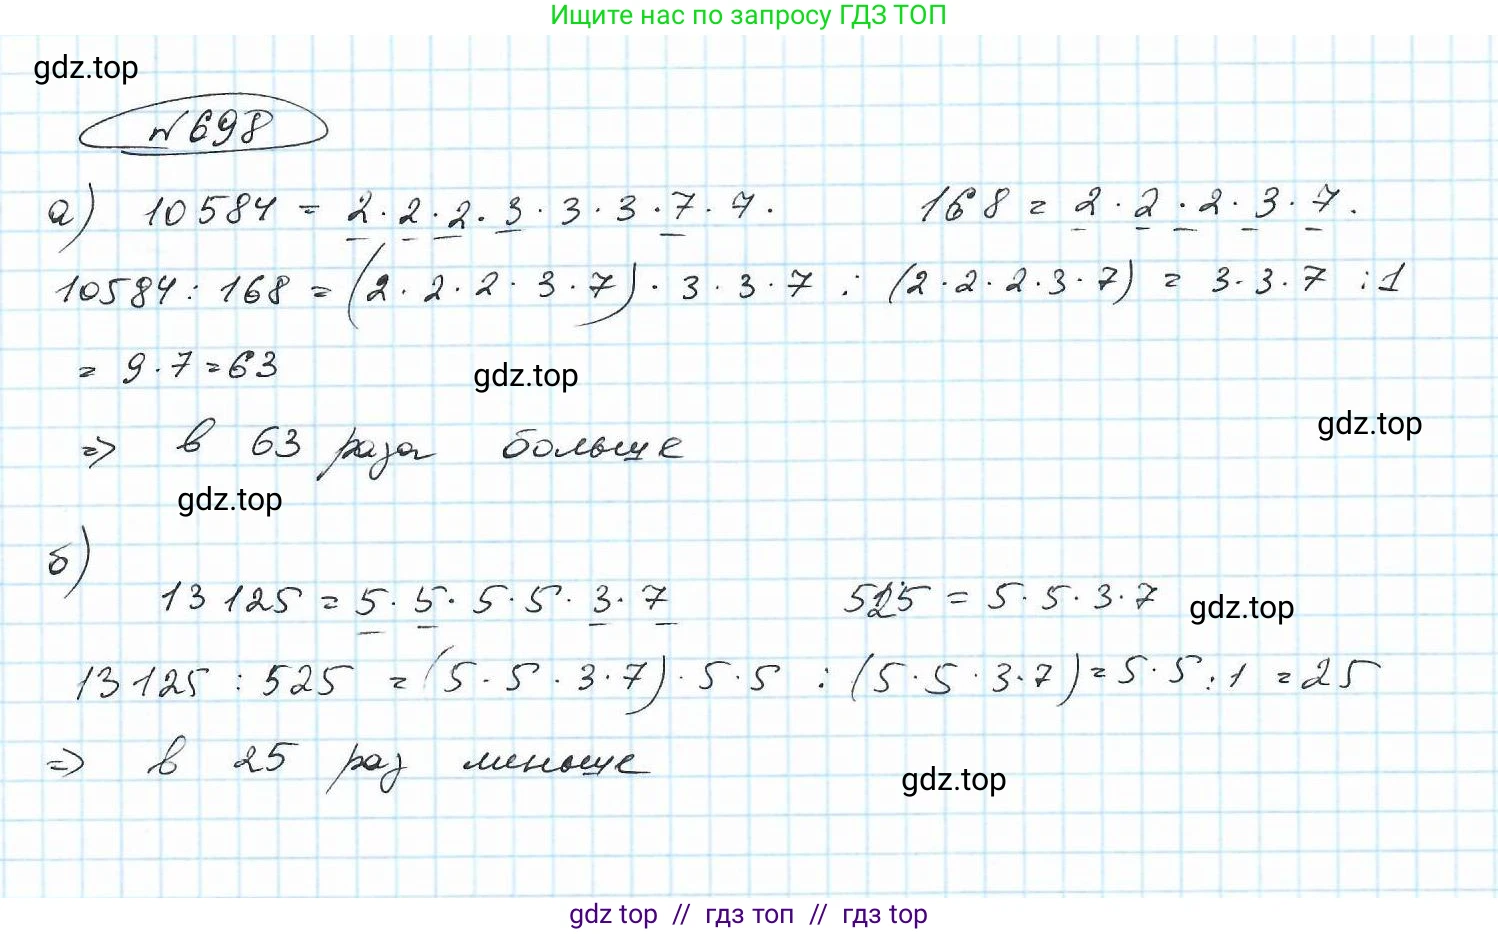 Ищите нас по запросу ГДЗ ТОП
gdz.top
№698
а) 10584 = 2·2·2·3·3·3·7·7. 168 = 2·2·2·3·7.
10584 : 168 = (2·2·2·3·7)·3·3·7 : (2·2·2·3·7) = 3·3·7 :1
= 9·7=63
gdz.top
gdz.top
=> в 63 раза больше
gdz.top
б)
13 125 = 5·5·5·5·3·7 525 = 5·5·3·7
gdz.top
13 125 : 525 = (5·5·3·7)·5·5 : (5·5·3·7)=5·5:1 =25
=> в 25 раз меньше
gdz.top
gdz top // гдз топ // гдз top